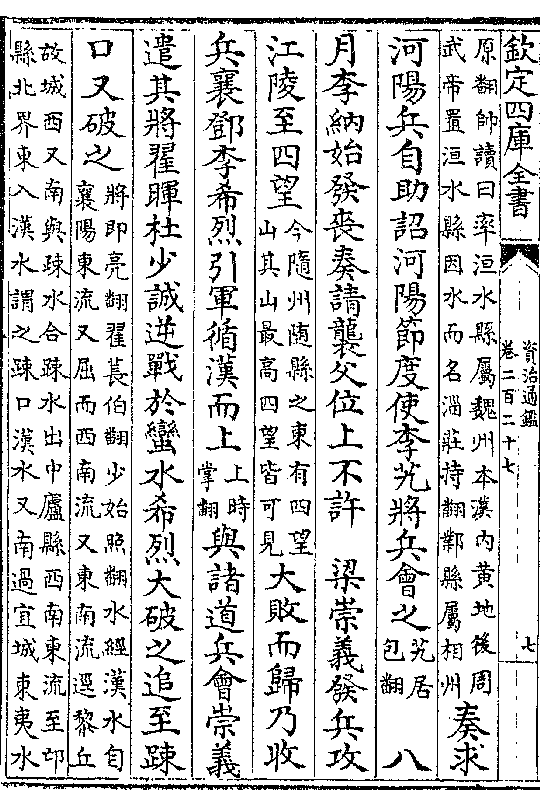 欽定四庫全書
資治通鑑
卷二百二十七
七
原翻帥讀曰率洹水縣屬魏州本漢內黃地後周
武帝置洹水縣因水而名淄莊持翻鄴縣屬相州
奏求
河陽兵自助詔河陽節度使李艽將兵會之
艽居
包翻
八
月李納始發喪奏請襲父位上不許　梁崇義發兵攻
江陵至四望
今隨州隨縣之東有四望
山其山最高四望皆可見
大敗而歸乃收
兵襄鄧李希烈引軍循漢而上
上時
掌翻
與諸道兵會崇義
遣其將翟暉杜少誠逆戰於蠻水希烈大破之追至疎
口又破之
將即亮翻翟萇伯翻少始照翻水經漢水自
襄陽東流又屈而西南流又東南流逕黎丘
故城西又南與疎水合疎水出中廬縣西南東流至邔
縣北界東入漢水謂之疎口漢水又南過宜城東夷水